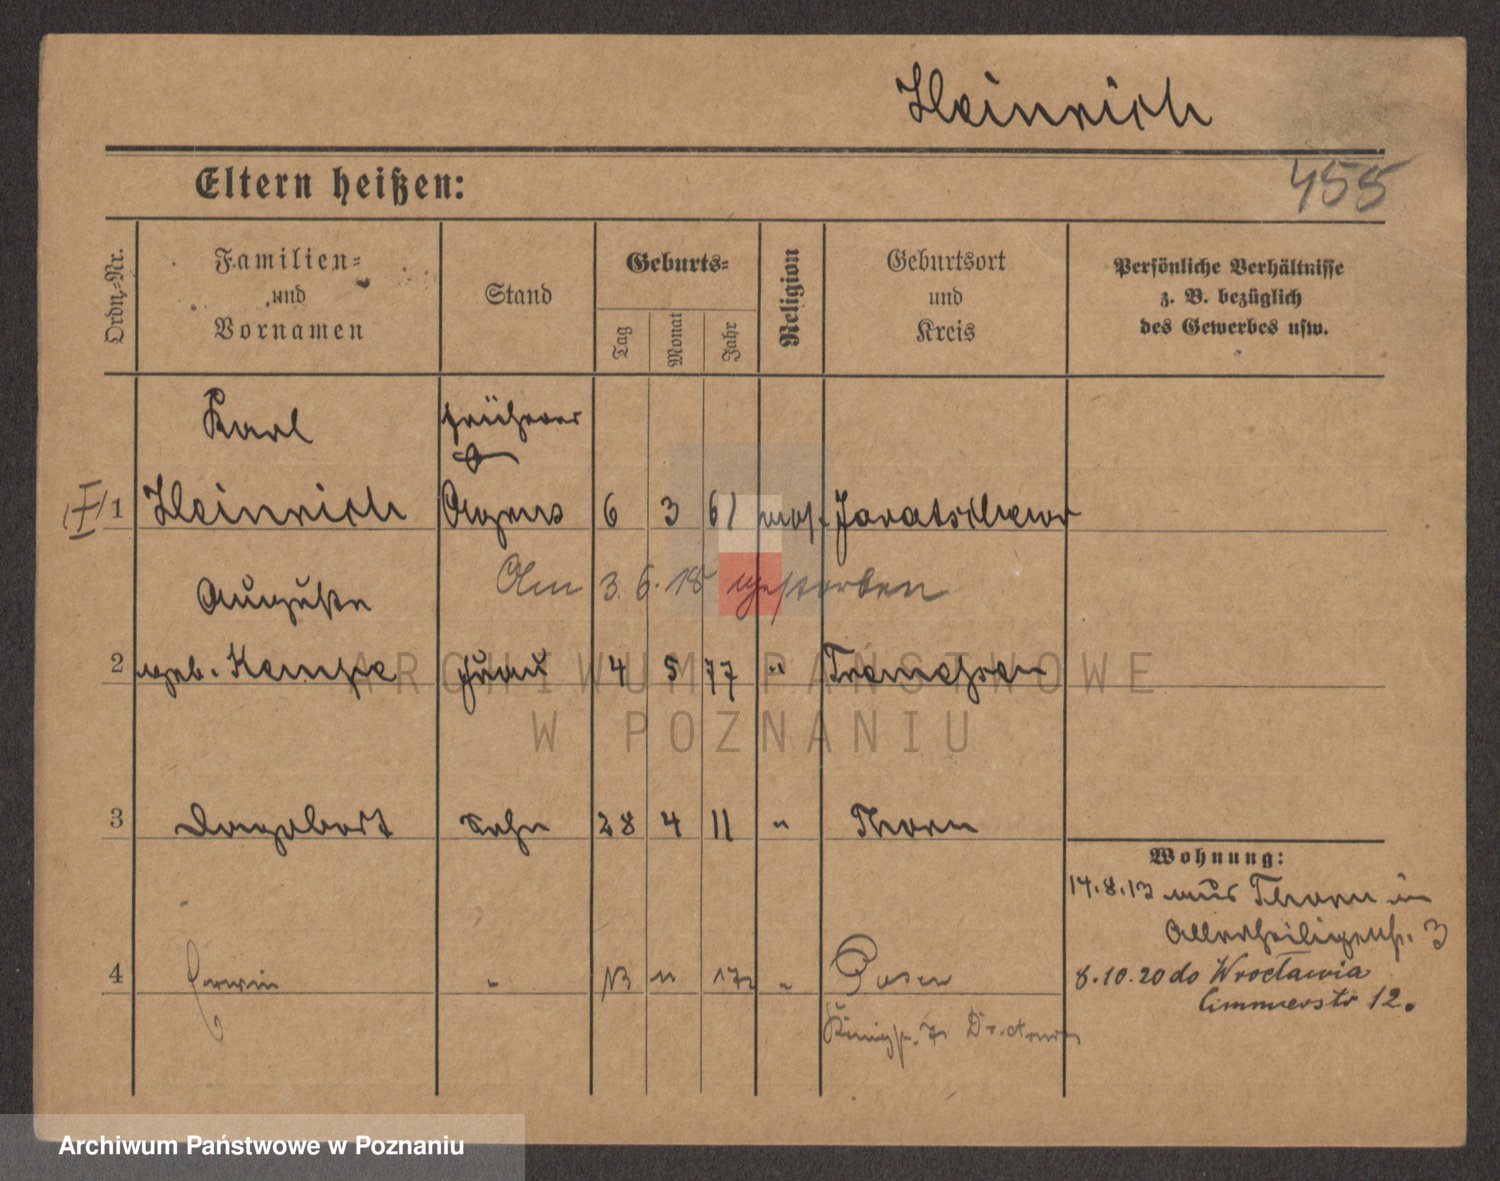 Heinrich
455
Eltern heißen:
Ordn.-Nr.
Familien-
und
Vornamen
Stand
Geburts-
Tag
Monat
Jahr
Religion
Geburtsort
und
Kreis
Persönliche Verhältnisse
z. B. bezüglich
des Gewerbes usw.
Karl früherer
1 Heinrich 6 3 61 mos.
Auguste Am 3. 6. 18 gestorben
2 geb. Kempe Frau 4 5 77 " Tremessen
3 Dagobert Sohn 28 4 11 " Thorn
Wohnung:
14.8.13 aus Thorn in
Allerheiligenstr. 3
4 Erwin " 13 11 " Posen
8.10.20 do Wrocławia
Cimmerstr 12.
Königspl. 7
ARCHIWUM PAŃSTWOWE
W POZNANIU
Archiwum Państwowe w Poznaniu